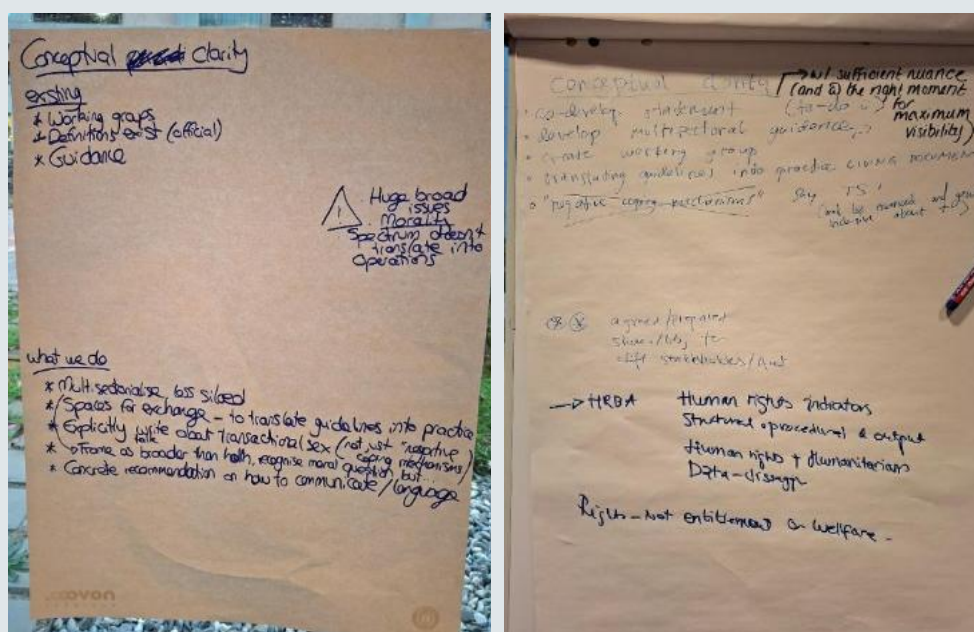 Conceptual Clarity
existing
* Working groups
* Definitions exist (official)
* Guidance
! . Huge broad
issues
. Morality
Spectrum doesn't
translate into
Operations
what we do
* Multisectorialise, less siloed
* Spaces for exchange – to translate guidelines into practice
* Explicitly write about transactional sex (not just "negative
talk
coping mechanisms)
* Frame as broader than health, recognise moral question, but...
* Concrete recommendation on how to communicate/language
novon
Conceptual clarity
w/ sufficient nuance
(and @ the right moment
for
maximum
visibility)
• co-develop statement (to-do
• develop multisectoral guidance
• create working group
• translating guidelines into practice LIVING DOCUMENT
• "negative coping mechanisms" say TS
(and be nuanced and
inclusive about
agreed/prepared
stakeholders
→ HRBA
Human rights indicators
Structural, procedural & output
Human rights + Humanitarians
Data-disagg
Rights – Not entitlement or welfare –